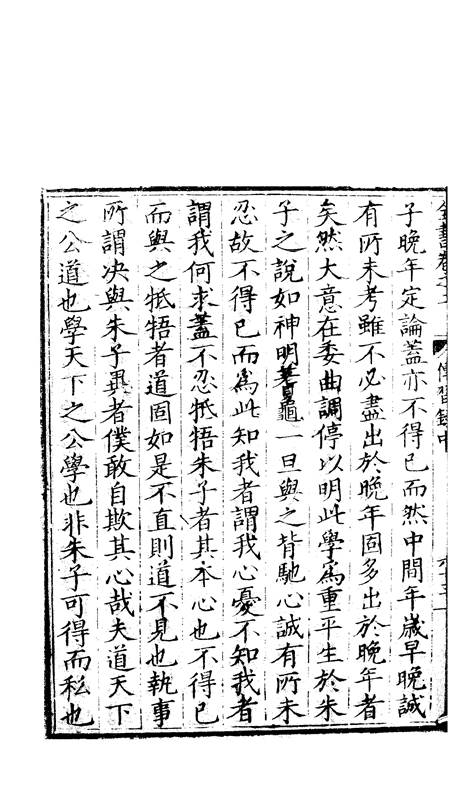 子晚年定論蓋亦不得已而然中間年歲早晚誠
有所未考雖不必盡出於晚年固多出於晚年者
矣然大意在委曲調停以明此學為重平生於朱
子之說如神明蓍龜一旦與之背馳心誠有所未
忍故不得已而為此知我者謂我心憂不知我者
謂我何求蓋不忍牴牾朱子者其本心也不得已
而與之牴牾者道固如是不直則道不見也執事
所謂决與朱子異者僕敢自欺其心哉夫道天下
之公道也學天下之公學也非朱子可得而私也